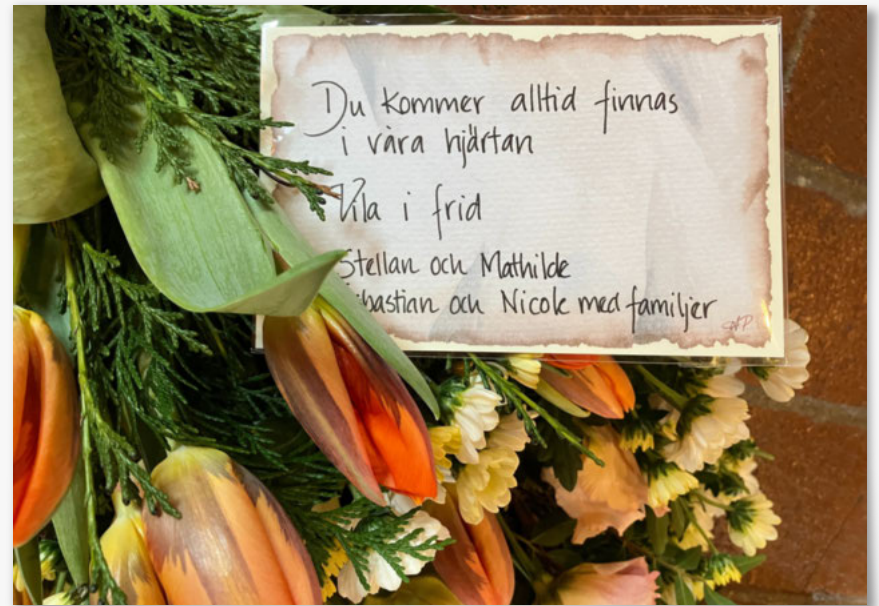 Du kommer alltid finnas
i våra hjärtan
Vila i frid
Stellan och Mathilde
bastian och Nicole med familjer